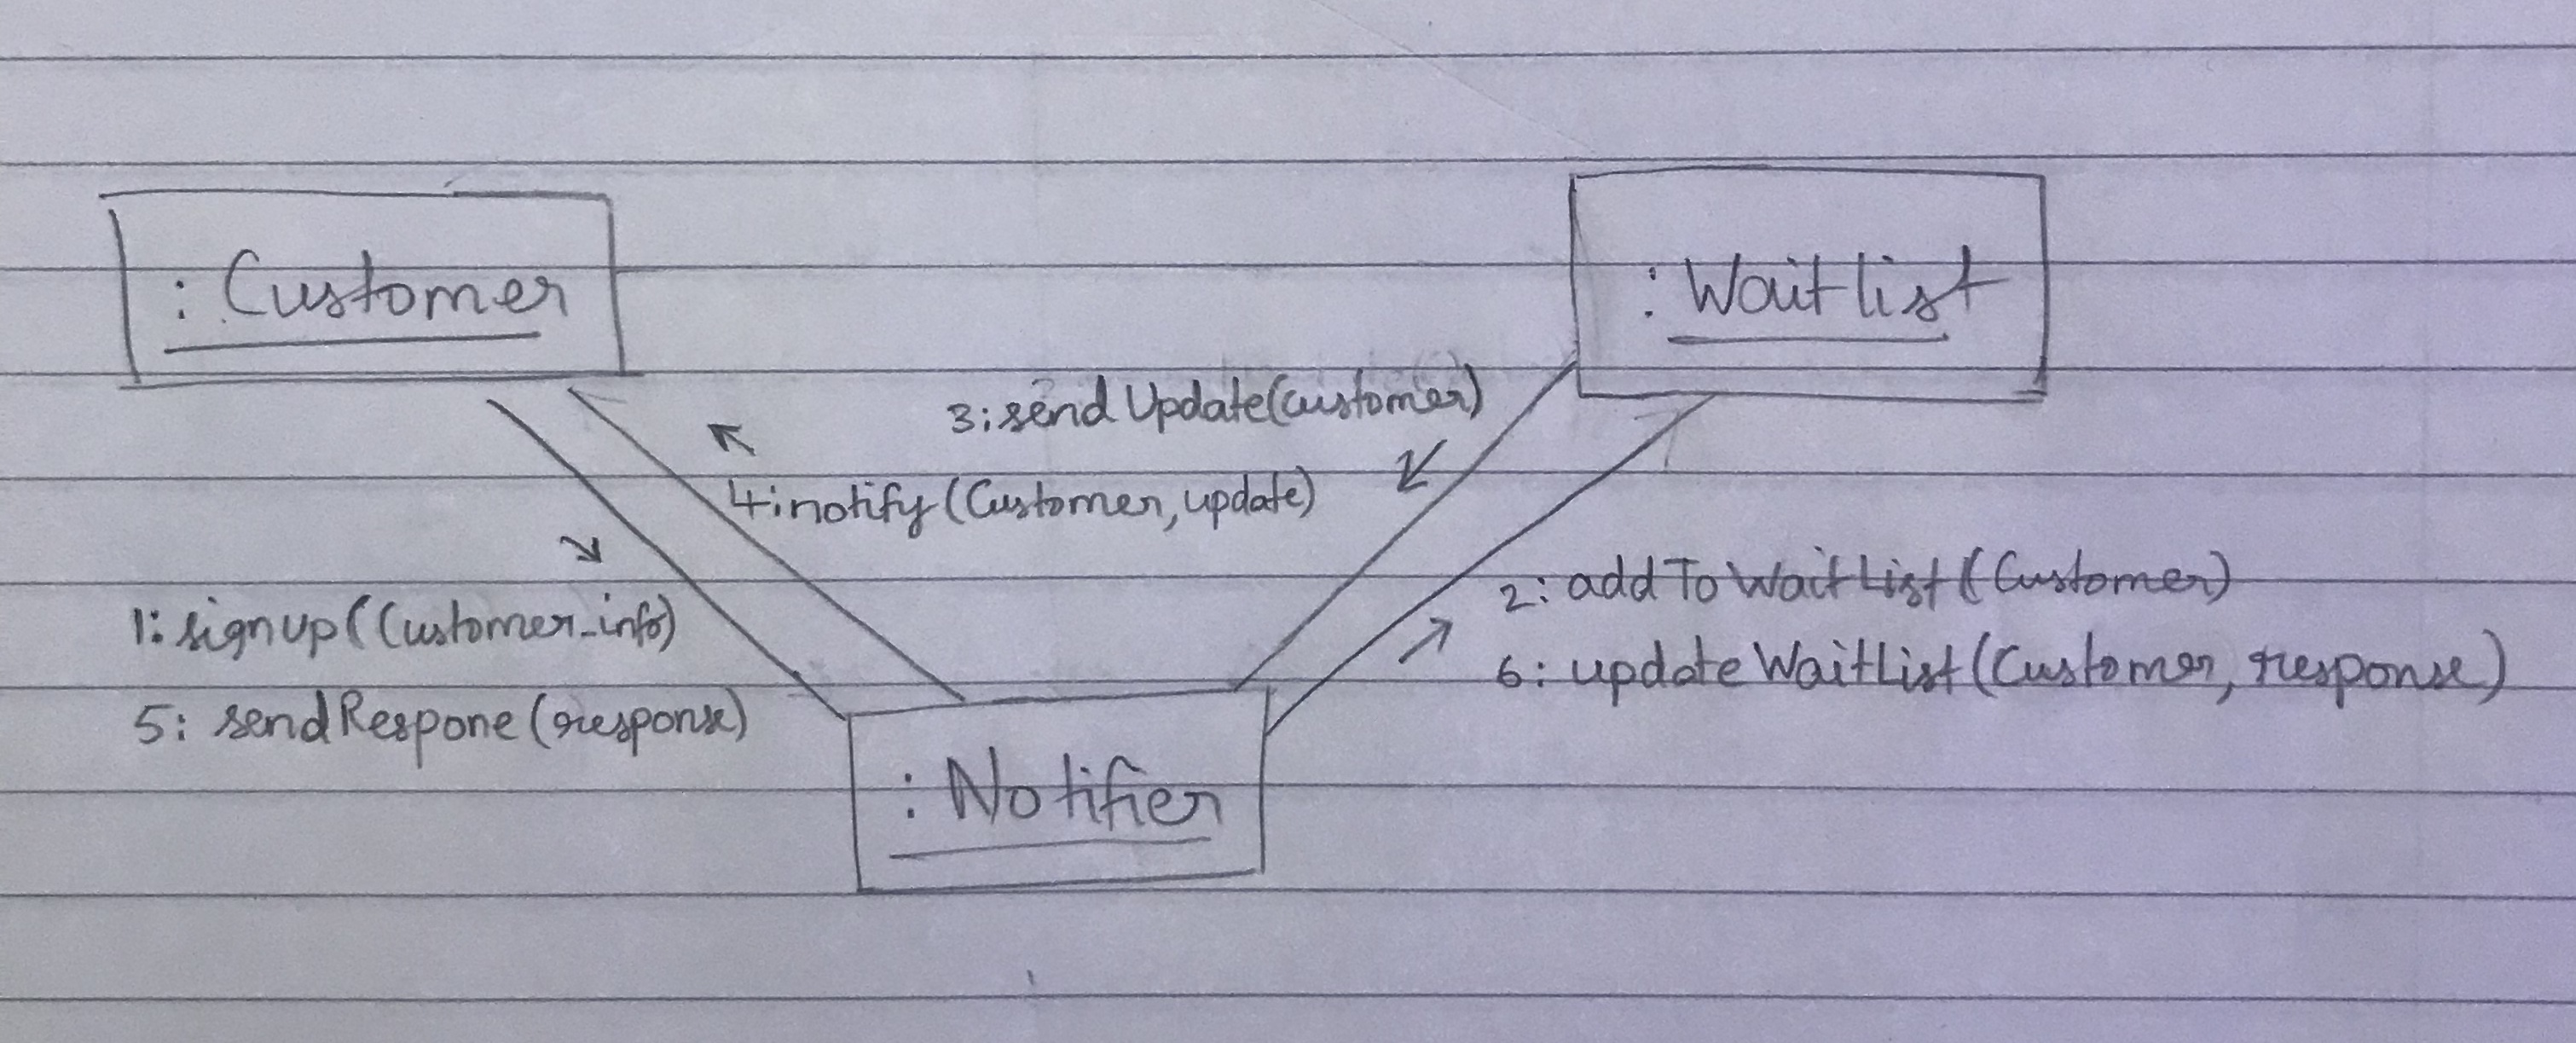 : Customer
: Waitlist
3: send Update(customer)
4: notify (Customer, update)
1: signup (Customer_info)
5: sendRespone (response)
2: addToWaitList (Customer)
6: updateWaitList (Customer, response)
: Notifier